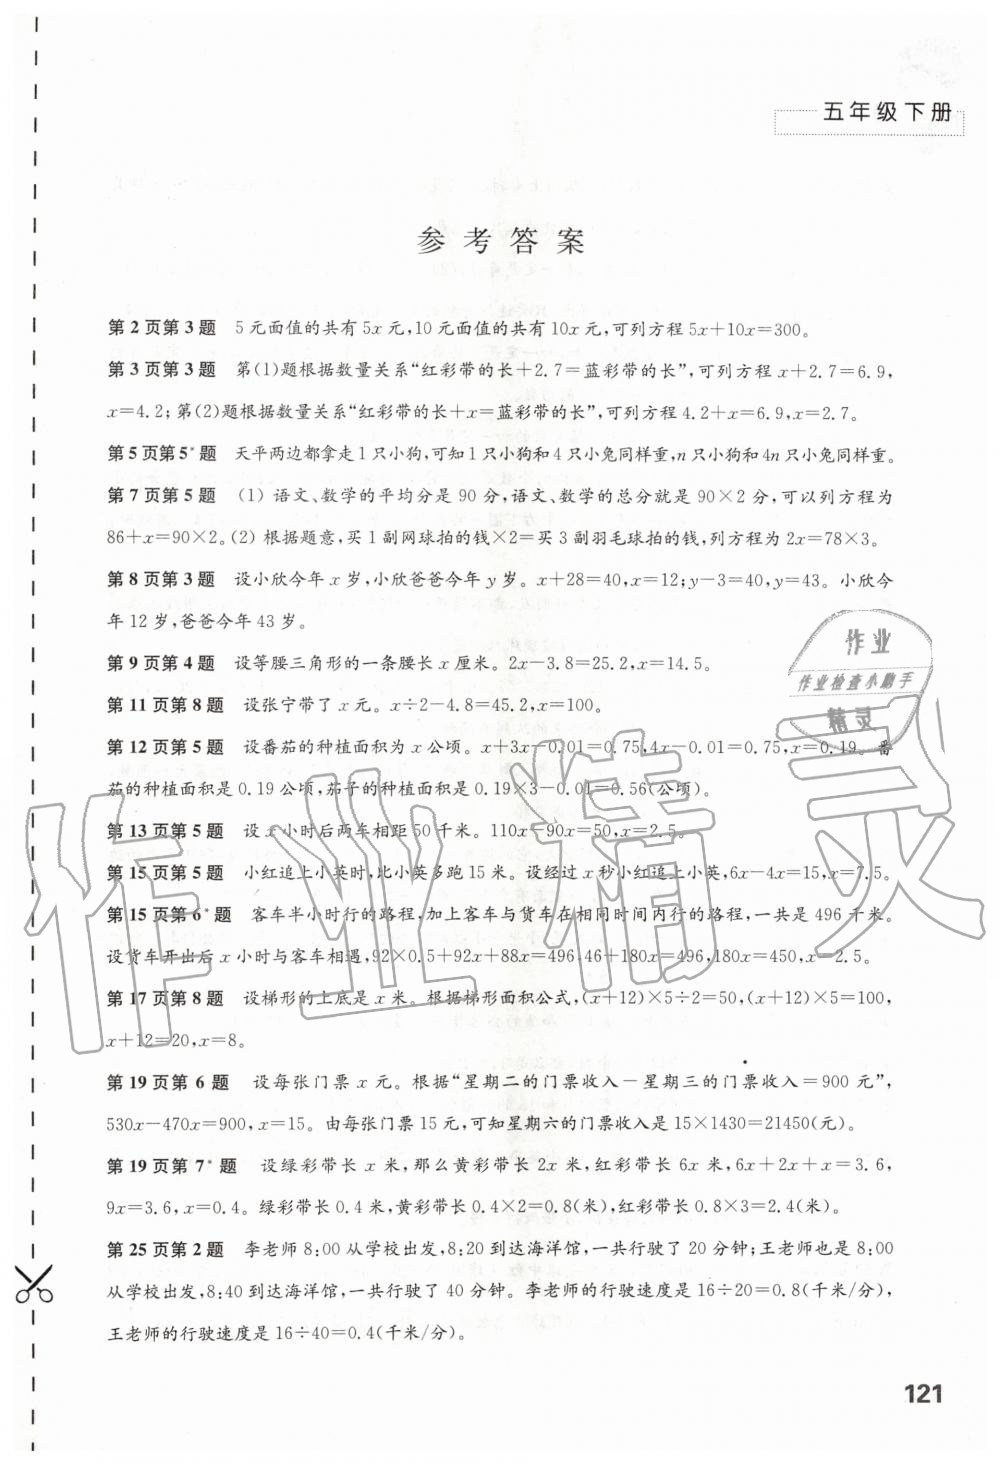 五年级下册
参考答案
第2页第3题 5元面值的共有5x元,10元面值的共有10x元,可列方程5x+10x=300。
第3页第3题 第(1)题根据数量关系“红彩带的长+2.7=蓝彩带的长”,可列方程x+2.7=6.9,
x=4.2;第(2)题根据数量关系“红彩带的长+x=蓝彩带的长”,可列方程4.2+x=6.9,x=2.7。
第5页第5*题 天平两边都拿走1只小狗,可知1只小狗和4只小兔同样重,n只小狗和4n只小兔同样重。
第7页第5题 (1) 语文、数学的平均分是90分,语文、数学的总分就是90×2分,可以列方程为
86+x=90×2。(2) 根据题意,买1副网球拍的钱×2=买3副羽毛球拍的钱,列方程为2x=78×3。
第8页第3题 设小欣今年x岁,小欣爸爸今年y岁。x+28=40,x=12;y-3=40,y=43。小欣今
年12岁,爸爸今年43岁。
第9页第4题 设等腰三角形的一条腰长x厘米。2x-3.8=25.2,x=14.5。
第11页第8题 设张宁带了x元。x÷2-4.8=45.2,x=100。
第12页第5题 设番茄的种植面积为x公顷。x+3x-0.01=0.75,4x-0.01=0.75,x=0.19。番
茄的种植面积是0.19公顷,茄子的种植面积是0.19×3-0.01=0.56(公顷)。
第13页第5题 设x小时后两车相距50千米。110x-90x=50,x=2.5。
第15页第5题 小红追上小英时,比小英多跑15米。设经过x秒小红追上小英,6x-4x=15,x=7.5。
第15页第6*题 客车半小时行的路程,加上客车与货车在相同时间内行的路程,一共是496千米。
设货车开出后x小时与客车相遇,92×0.5+92x+88x=496,46+180x=496,180x=450,x=2.5。
第17页第8题 设梯形的上底是x米。根据梯形面积公式,(x+12)×5÷2=50,(x+12)×5=100,
x+12=20,x=8。
第19页第6题 设每张门票x元。根据“星期二的门票收入-星期三的门票收入=900元”,
530x-470x=900,x=15。由每张门票15元,可知星期六的门票收入是15×1430=21450(元)。
第19页第7*题 设绿彩带长x米,那么黄彩带长2x米,红彩带长6x米,6x+2x+x=3.6,
9x=3.6,x=0.4。绿彩带长0.4米,黄彩带长0.4×2=0.8(米),红彩带长0.8×3=2.4(米)。
第25页第2题 李老师8:00从学校出发,8:20到达海洋馆,一共行驶了20分钟;王老师也是8:00
从学校出发,8:40到达海洋馆,一共行驶了40分钟。李老师的行驶速度是16÷20=0.8(千米/分),
王老师的行驶速度是16÷40=0.4(千米/分)。
121
作业
作业检查小助手
精灵
作业精灵